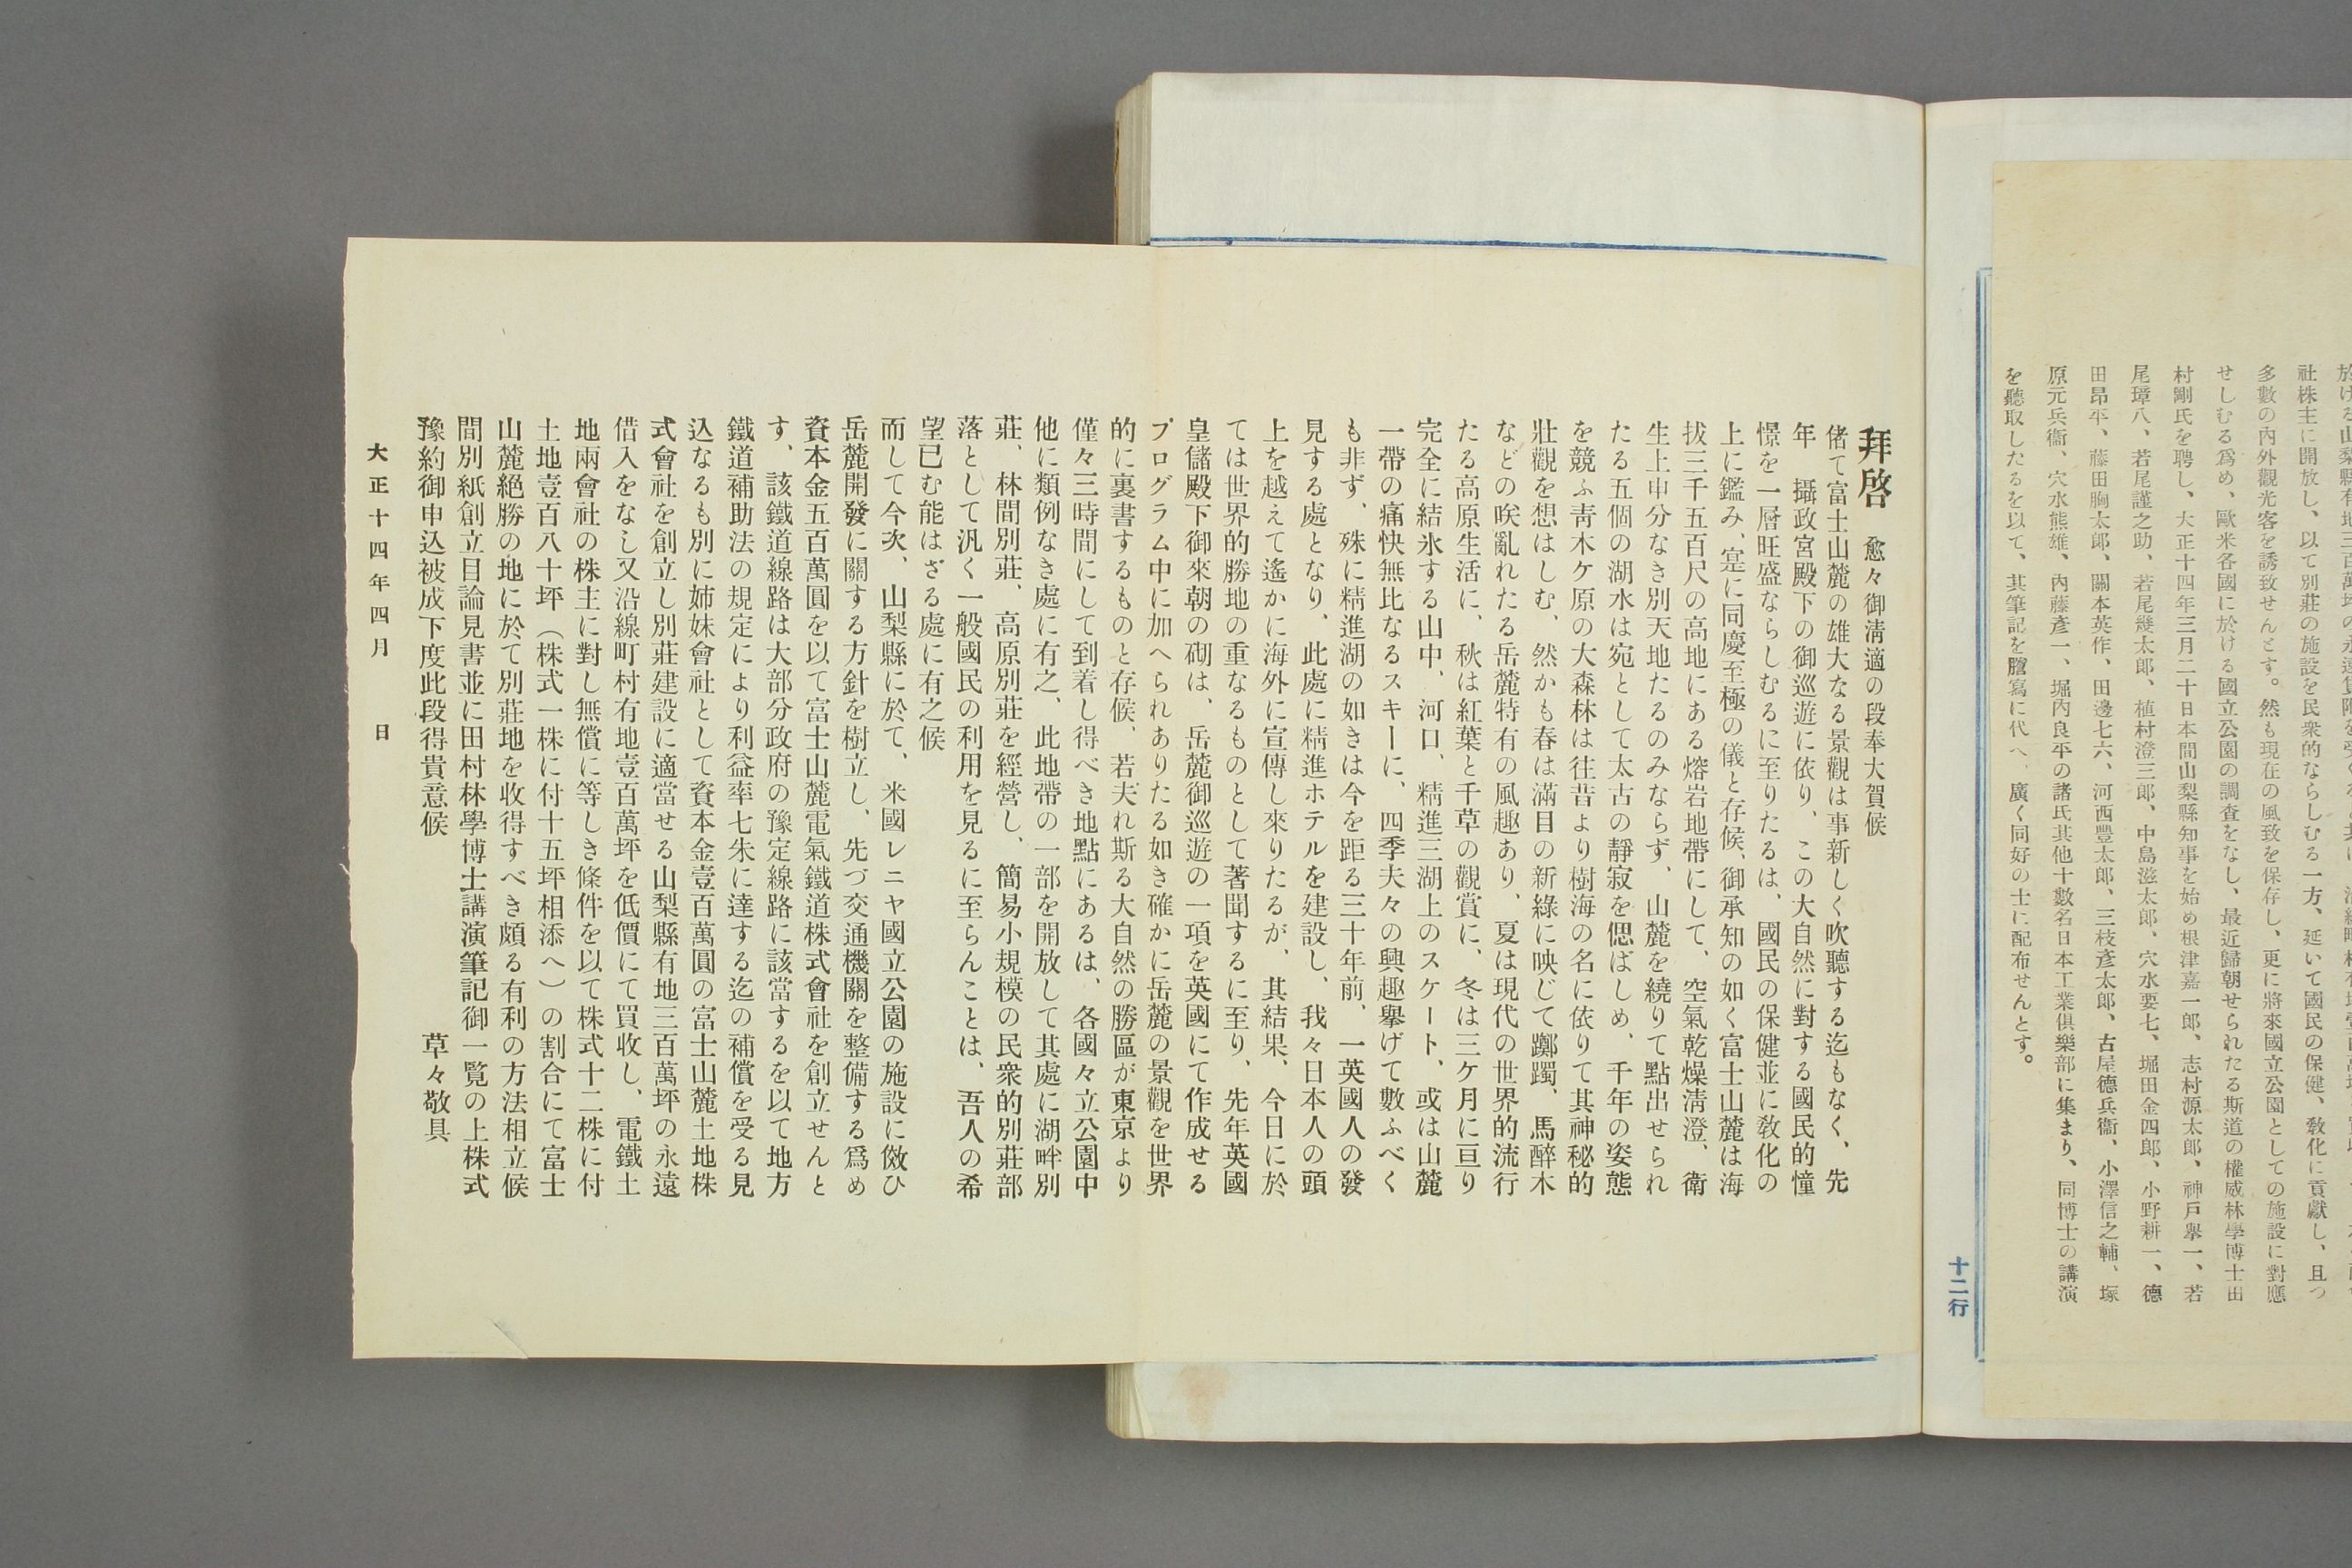 於ける山梨縣有地三百萬坪の永遠賃借を
社株主に開放し、以て別莊の施設を民衆的ならしむる一方、延いて國民の保健、敎化に貢獻し、且つ
多數の內外觀光客を誘致せんとす。然も現在の風致を保存し、更に將來國立公園としての施設に對應
せしむる爲め、歐米各國に於ける國立公園の調査をなし、最近歸朝せられたる斯道の權威林學博士田
村剛氏を聘し、大正十四年三月二十日本間山梨縣知事を始め根津嘉一郎、志村源太郎、神戶擧一、若
尾璋八、若尾謹之助、若尾幾太郎、植村澄三郎、中島滋太郎、穴水要七、堀田金四郎、小野耕一、德
田昂平、藤田胸太郎、關本英作、田邊七六、河西豐太郎、三枝彥太郎、古屋德兵衞、小澤信之輔、塚
原元兵衞、穴水熊雄、內藤彥一、堀內良平の諸氏其他十數名日本工業俱樂部に集まり、同博士の講演
を聽取したるを以て、其筆記を謄寫に代へ、廣く同好の士に配布せんとす。
十二行
拜啓　愈々御淸適の段奉大賀候
偖て富士山麓の雄大なる景觀は事新しく吹聽する迄もなく、先
年　攝政宮殿下の御巡遊に依り、この大自然に對する國民的憧
憬を一層旺盛ならしむるに至りたるは、國民の保健並に敎化の
上に鑑み、寔に同慶至極の儀と存候、御承知の如く富士山麓は海
拔三千五百尺の高地にある熔岩地帶にして、空氣乾燥淸澄、衞
生上申分なき別天地たるのみならず、山麓を繞りて點出せられ
たる五個の湖水は宛として太古の靜寂を偲ばしめ、千年の姿態
を競ふ靑木ケ原の大森林は往昔より樹海の名に依りて其神秘的
壯觀を想はしむ、然かも春は滿目の新綠に映じて躑躅、馬醉木
などの咲亂れたる岳麓特有の風趣あり、夏は現代の世界的流行
たる高原生活に、秋は紅葉と千草の觀賞に、冬は三ケ月に亘り
完全に結氷する山中、河口、精進三湖上のスケート、或は山麓
一帶の痛快無比なるスキーに、四季夫々の興趣擧げて數ふべく
も非ず、殊に精進湖の如きは今を距る三十年前、一英國人の發
見する處となり、此處に精進ホテルを建設し、我々日本人の頭
上を越えて遙かに海外に宣傳し來りたるが、其結果、今日に於
ては世界的勝地の重なるものとして著聞するに至り、先年英國
皇儲殿下御來朝の砌は、岳麓御巡遊の一項を英國にて作成せる
プログラム中に加へられありたる如き確かに岳麓の景觀を世界
的に裏書するものと存候、若夫れ斯る大自然の勝區が東京より
僅々三時間にして到着し得べき地點にあるは、各國々立公園中
他に類例なき處に有之、此地帶の一部を開放して其處に湖畔別
莊、林間別莊、高原別莊を經營し、簡易小規模の民衆的別莊部
落として汎く一般國民の利用を見るに至らんことは、吾人の希
望已む能はざる處に有之候
而して今次、山梨縣に於て、米國レニヤ國立公園の施設に傚ひ
岳麓開發に關する方針を樹立し、先づ交通機關を整備する爲め
資本金五百萬圓を以て富士山麓電氣鐵道株式會社を創立せんと
す、該鐵道線路は大部分政府の豫定線路に該當するを以て地方
鐵道補助法の規定により利益率七朱に達する迄の補償を受る見
込なるも別に姉妹會社として資本金壹百萬圓の富士山麓土地株
式會社を創立し別莊建設に適當せる山梨縣有地三百萬坪の永遠
借入をなし又沿線町村有地壹百萬坪を低價にて買收し、電鐵土
地兩會社の株主に對し無償に等しき條件を以て株式十二株に付
土地壹百八十坪（株式一株に付十五坪相添へ）の割合にて富士
山麓絕勝の地に於て別莊地を收得すべき頗る有利の方法相立候
間別紙創立目論見書並に田村林學博士講演筆記御一覽の上株式
豫約御申込被成下度此段得貴意候　　　草々敬具
大正十四年四月　　日